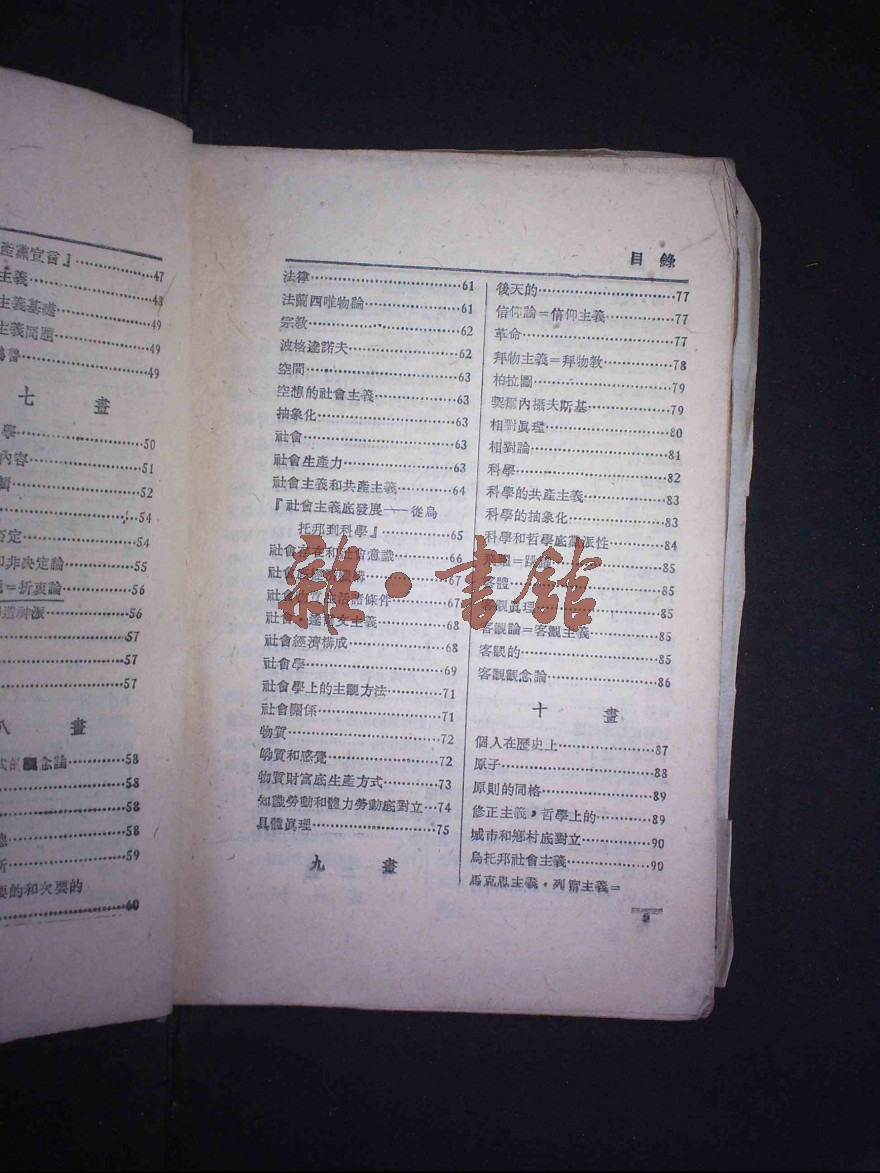 產黨宣言』……47
主義……48
主義基礎……49
主義問題……49
……49
七 畫
學……50
內容……51
……52
……54
否定……54
和非決定論……55
＝折衷論……56
造神派……56
……57
……57
……57
八 畫
式的觀念論……58
……58
……58
……58
斯……59
要的和次要的
……60
目錄
法律……61
法蘭西唯物論……61
宗教……62
波格達諾夫……62
空間……63
空想的社會主義……63
抽象化……63
社會……63
社會生產力……63
社會主義和共產主義……64
『社會主義底發展——從烏
托邦到科學』……65
社會存在和社會意識……66
社會底……67
社會物質生活諸條件……67
社會·達爾文主義……68
社會經濟構成……68
社會學……69
社會學上的主觀方法……71
社會關係……71
物質……72
物質和感覺……72
物質財富底生產方式……73
知識勞動和體力勞動底對立…74
具體眞理……75
九 畫
後天的……77
信仰論＝信仰主義……77
革命……77
拜物主義＝拜物教……78
柏拉圖……79
契爾內攝夫斯基……79
相對眞理……80
相對論……81
科學……82
科學的共產主義……83
科學的抽象化……83
科學和哲學底黨派性……84
飛躍＝跳躍……85
客體……85
客觀眞理……85
客觀論＝客觀主義……85
客觀的……85
客觀觀念論……86
十 畫
個人在歷史上……87
原子……88
原則的同格……89
修正主義，哲學上的……89
城市和鄉村底對立……90
烏托邦社會主義……90
馬克思主義·列甯主義＝
9
雜·書館